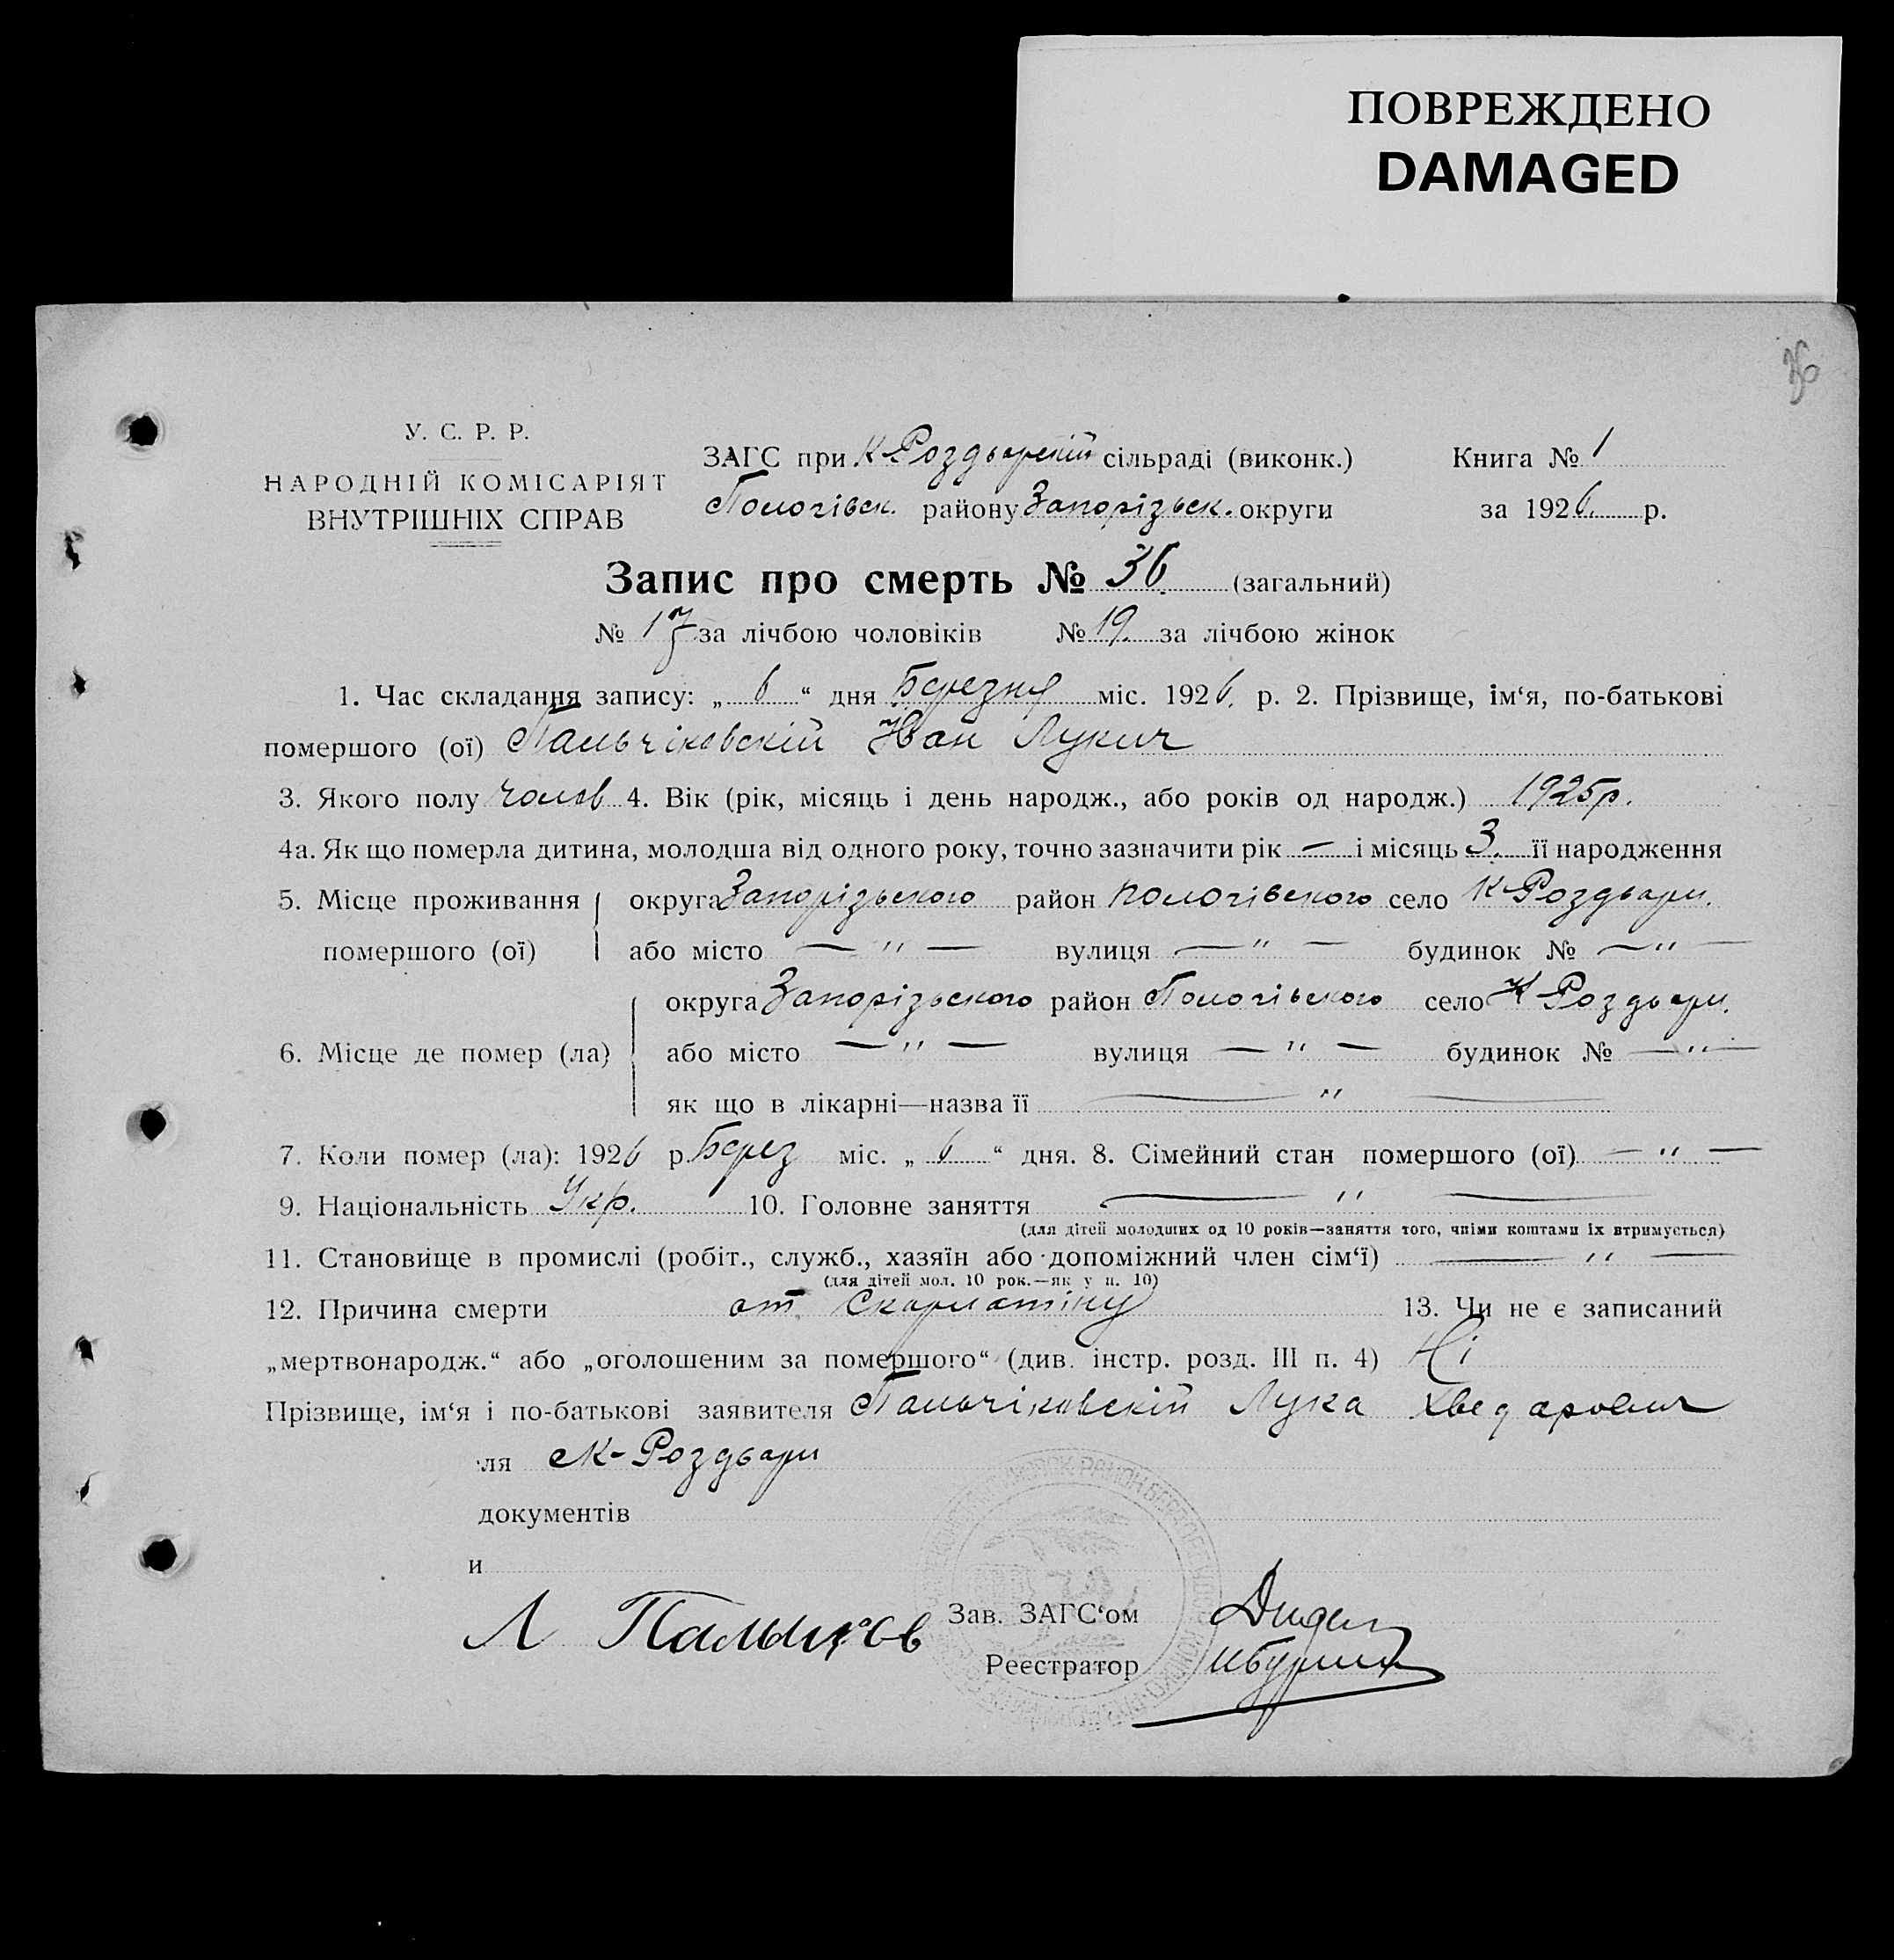 ПОВРЕЖДЕНО
DAMAGED
36
У. С. Р. Р.
НАРОДНІЙ КОМІСАРІЯТ
ВНУТРІШНІХ СПРАВ
ЗАГС при К-Роздорській сільраді (виконк.)
Пологівск. району Запорізьск. округи
Книга № 1
за 1926. р.
Запис про смерть № 36. (загальний)
№ 17 за лічбою чоловіків № 19. за лічбою жінок
1. Час складання запису: „ 6 “ дня Березня міс. 1926. р. 2. Прізвище, ім‘я, по-батькові
помершого (ої) Пальчіковскій Іван Лукич
3. Якого полу чолов 4. Вік (рік, місяць і день народж., або років од народж.) 1925р.
4а. Як що померла дитина, молодша від одного року, точно зазначити рік — і місяць 3. її народження
5. Місце проживання помершого (ої) округа Запорізького район Пологівского село К-Роздори.
або місто — " — вулиця — " — будинок № — " —
6. Місце де помер (ла) округа Запорізьского район Пологівского село К-Роздори.
або місто — " — вулиця — " — будинок № — " —
як що в лікарні—назва її — " —
7. Коли помер (ла): 1926 р. Берез міс. „ 6 “ дня. 8. Сімейний стан помершого (ої) — " —
9. Національність Укр. 10. Головне заняття — " —
(для дітей молодших од 10 років—заняття того, чиїми коштами їх втримується)
11. Становище в промислі (робіт., служб., хазяїн або допоміжний член сім‘ї) — " —
(для дітей мол. 10 рок.—як у п. 10)
12. Причина смерти от Скарлатіну 13. Чи не є записаний
„мертвонародж.“ або „оголошеним за помершого“ (див. інстр. розд. III п. 4) Ні
Прізвище, ім‘я і по-батькові заявителя Пальчіковскій Лука Хведорович
ля с К-Роздори
документів
и
Л Пальчіков
Зав. ЗАГС‘ом
Реєстратор